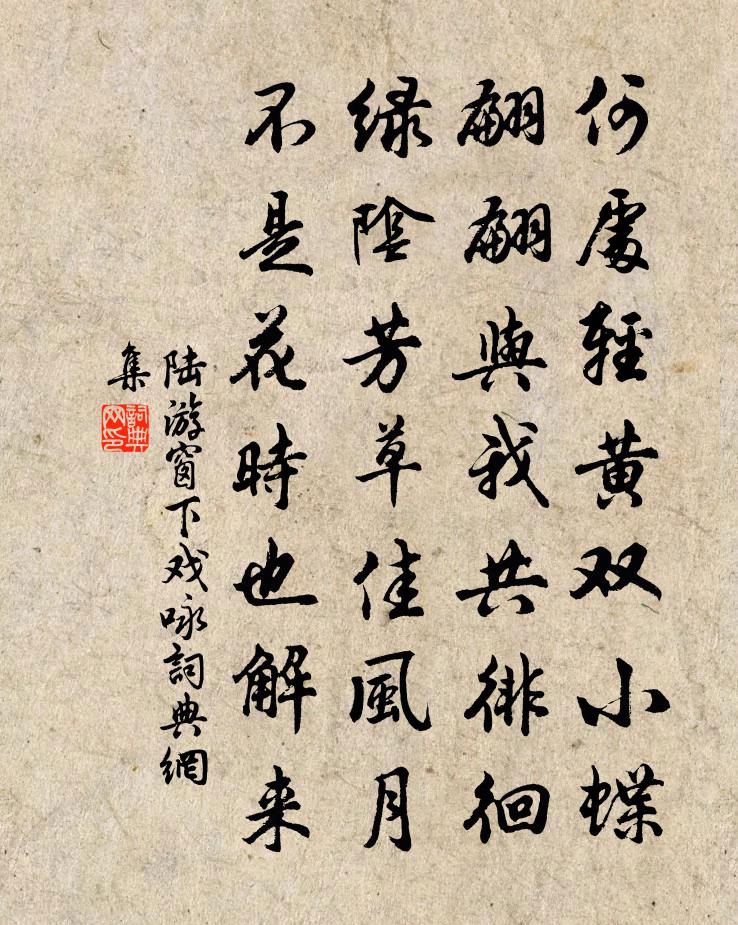 何處輕黄双小蝶
翩翩與我共徘徊
绿陰芳草佳風月
不是花時也解来
陆游窗下戏咏詞典網
集
詞典
网印